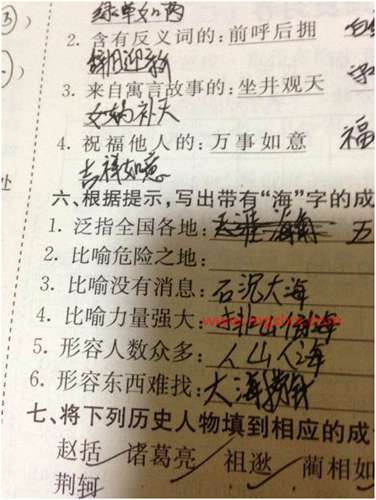 绿草如
2. 含有反义词的: 前呼后拥
辞旧迎新
3. 来自寓言故事的: 坐井观天
女娲补天
4. 祝福他人的: 万事如意 福
吉祥如意
处
六、根据提示,写出带有“海”字的成
1. 泛指全国各地: 天涯海角 五
2. 比喻危险之地:
3. 比喻没有消息: 石沉大海
4. 比喻力量强大: 排山倒海
5. 形容人数众多: 人山人海
6. 形容东西难找: 大海捞针
七、将下列历史人物填到相应的成
赵括 诸葛亮 祖逖 蔺相如
荆轲